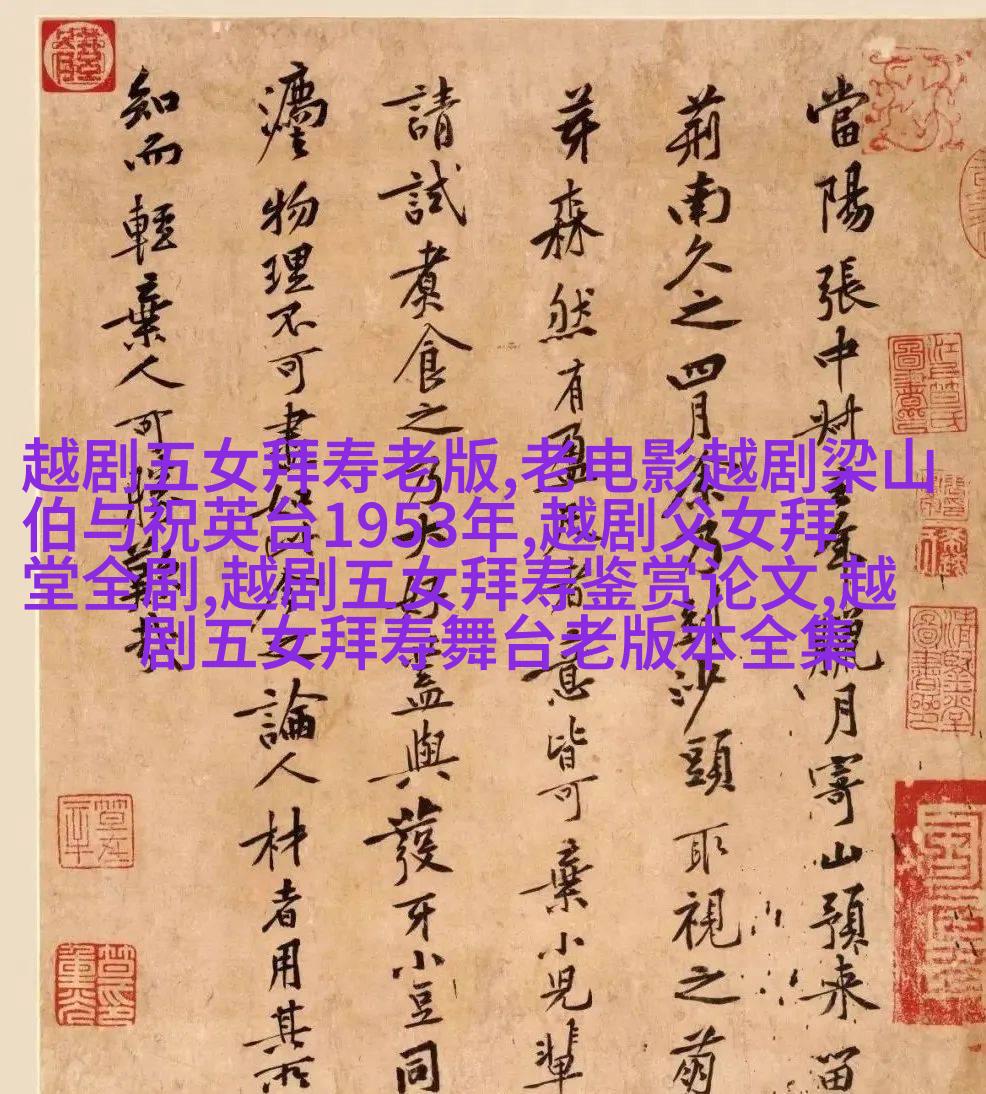 越剧五女拜寿老版,老电影越剧梁山
伯与祝英台1953年,越剧父女拜
堂全剧,越剧五女拜寿鉴赏论文,越
剧五女拜寿舞台老版本全集
當陽張中臘月寄山預来留
荊南久之四月餘乃到沙頭取視之萌
芽森然有盈尺者意皆可棄小兒輩
請試煮食之乃大好蓋與發牙小豆同
物理不可盡如此今之論人材者用其所
知而輕棄人可勝歎哉